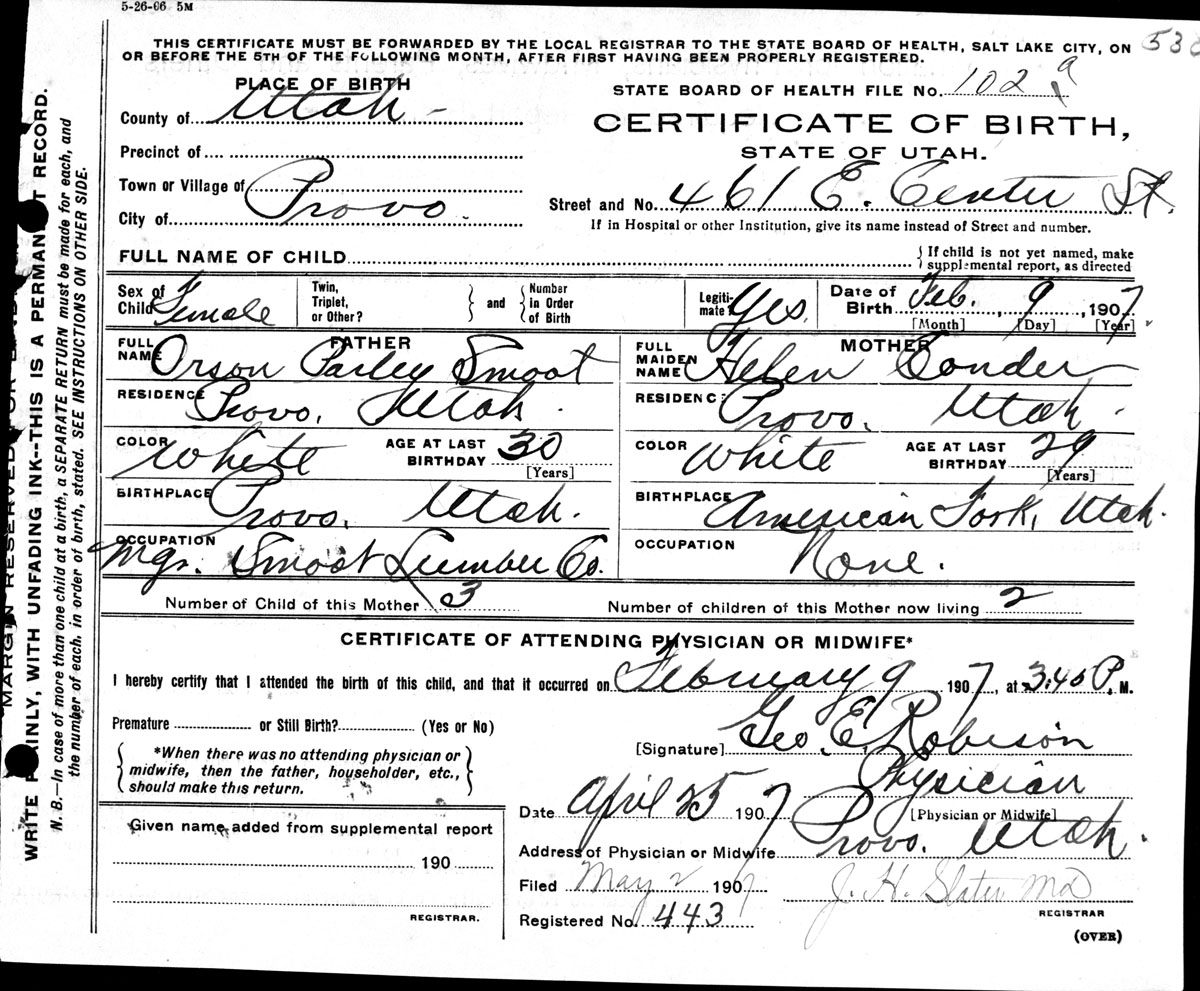 5-26-06 5M
THIS CERTIFICATE MUST BE FORWARDED BY THE LOCAL REGISTRAR TO THE STATE BOARD OF HEALTH, SALT LAKE CITY, ON
OR BEFORE THE 5TH OF THE FOLLOWING MONTH, AFTER FIRST HAVING BEEN PROPERLY REGISTERED.
PLACE OF BIRTH
STATE BOARD OF HEALTH FILE No. 102 a
County of Utah
CERTIFICATE OF BIRTH,
STATE OF UTAH.
Precinct of
Town or Village of
City of Provo.
Street and No. 461 E. Center St.
If in Hospital or other Institution, give its name instead of Street and number.
FULL NAME OF CHILD
If child is not yet named, make
supplemental report, as directed
Sex of Child Female
Twin, Triplet, or Other? and Number in Order of Birth
Legitimate? Yes.
Date of Birth Feb. 9, 1907
[Month] [Day] [Year]
FATHER
FULL NAME Orson Parley Smoot
RESIDENCE Provo, Utah.
COLOR White AGE AT LAST BIRTHDAY 30
[Years]
BIRTHPLACE Provo, Utah.
OCCUPATION Mgr. Smoot Lumber Co.
MOTHER
FULL MAIDEN NAME Helen Conder
RESIDENCE Provo, Utah.
COLOR White AGE AT LAST BIRTHDAY 29
[Years]
BIRTHPLACE American Fork, Utah.
OCCUPATION None.
Number of Child of this Mother 3 Number of children of this Mother now living 2
CERTIFICATE OF ATTENDING PHYSICIAN OR MIDWIFE*
I hereby certify that I attended the birth of this child, and that it occurred on February 9, 1907, at 3:40 P. M.
Premature or Still Birth? (Yes or No)
*When there was no attending physician or
midwife, then the father, householder, etc.,
should make this return.
[Signature] Geo. E. Robison
Physician
[Physician or Midwife]
Date April 25 1907
Address of Physician or Midwife Provo, Utah.
Filed May 2 1907
J. H. Slater MD
REGISTRAR
Registered No. 443
(OVER)
Given name added from supplemental report
190
REGISTRAR.
WRITE PLAINLY, WITH UNFADING INK--THIS IS A PERMANENT RECORD.
N. B.—In case of more than one child at a birth, a SEPARATE RETURN must be made for each, and
the number of each, in order of birth, stated. SEE INSTRUCTIONS ON OTHER SIDE.